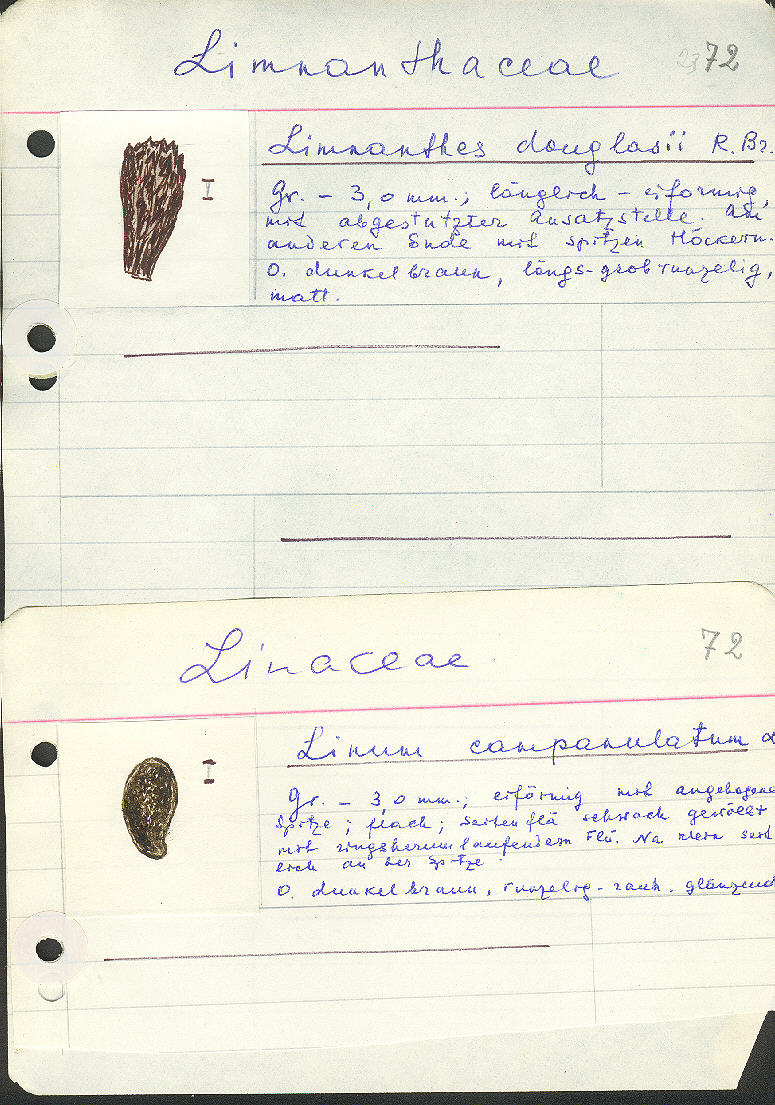 Limnanthaceae 72
Limnanthes douglasii R. Br.
Gr. – 3,0 mm.; länglich – eiförmig,
mit abgestutzter Ansatzstelle. Am
anderen Ende mit spitzen Höckern.
O. dunkelbraun, längs-grobrunzelig,
matt.
Linaceae 72
Linum campanulatum L
Gr. – 3,0 mm.; eiförmig mit angebogene
Spitze; flach; Seitenflä schwach gewölbt
mit ringsherumlaufendem Flü. Na klein seit
lich an der Spitze.
O. dunkelbraun, runzelig-rauh, glänzend